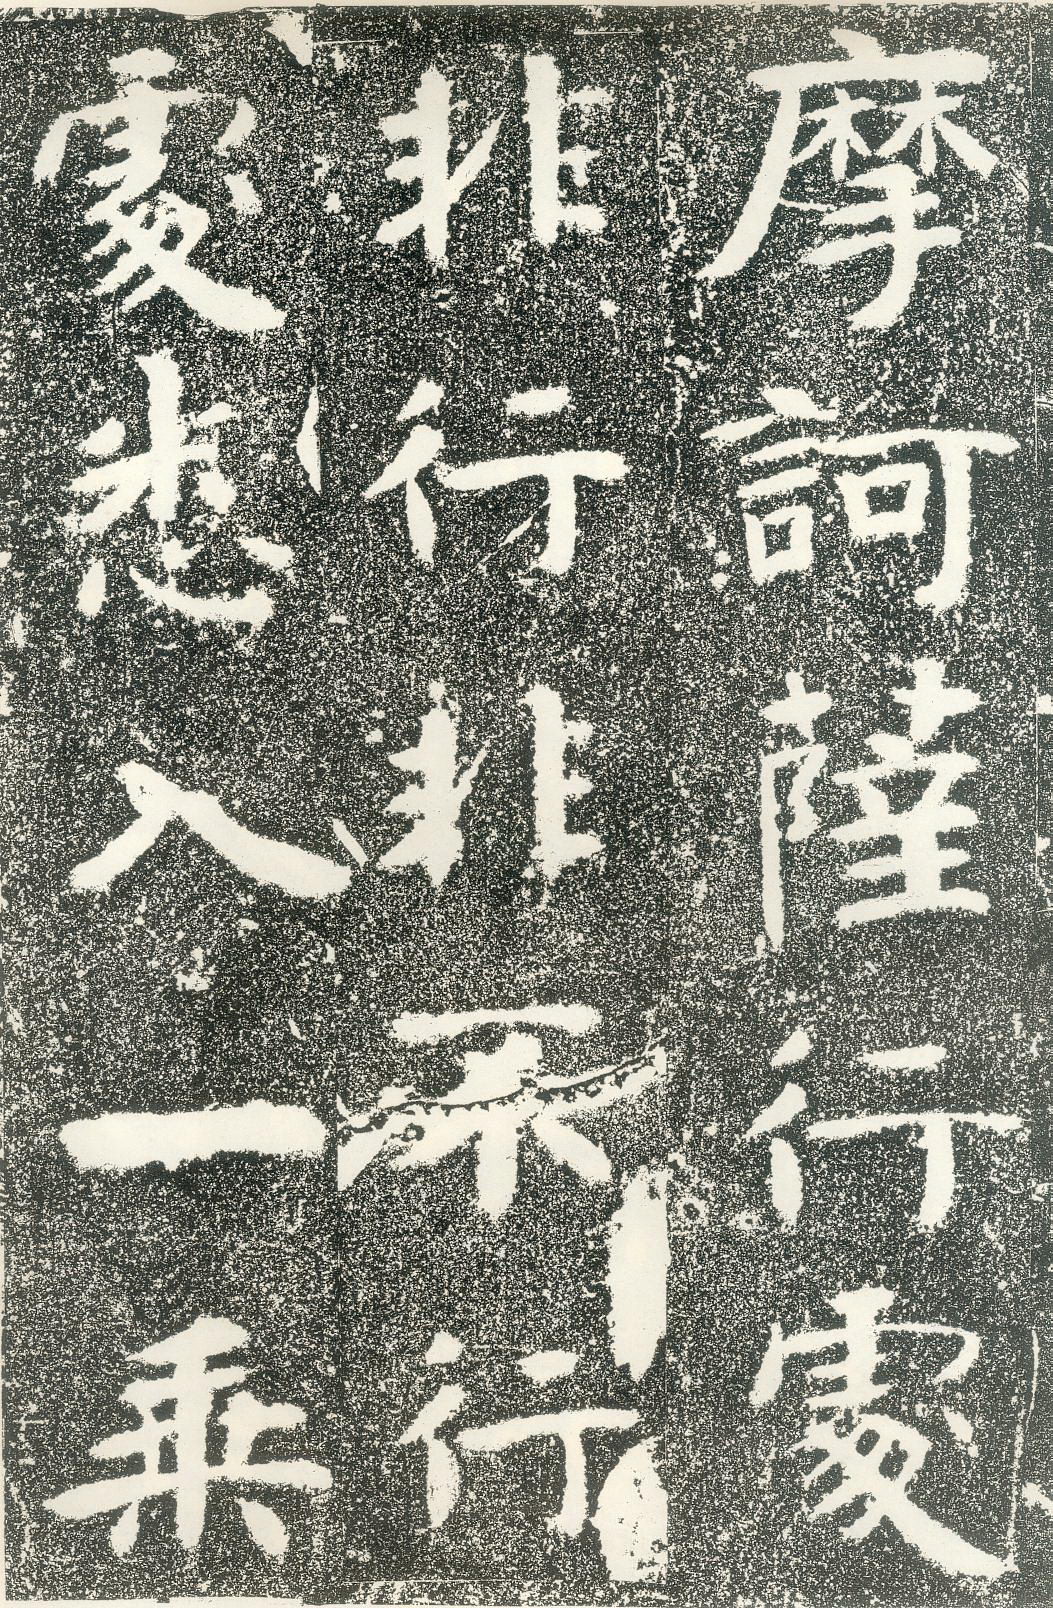 摩訶薩行處
非行非不行
處悲入一乘